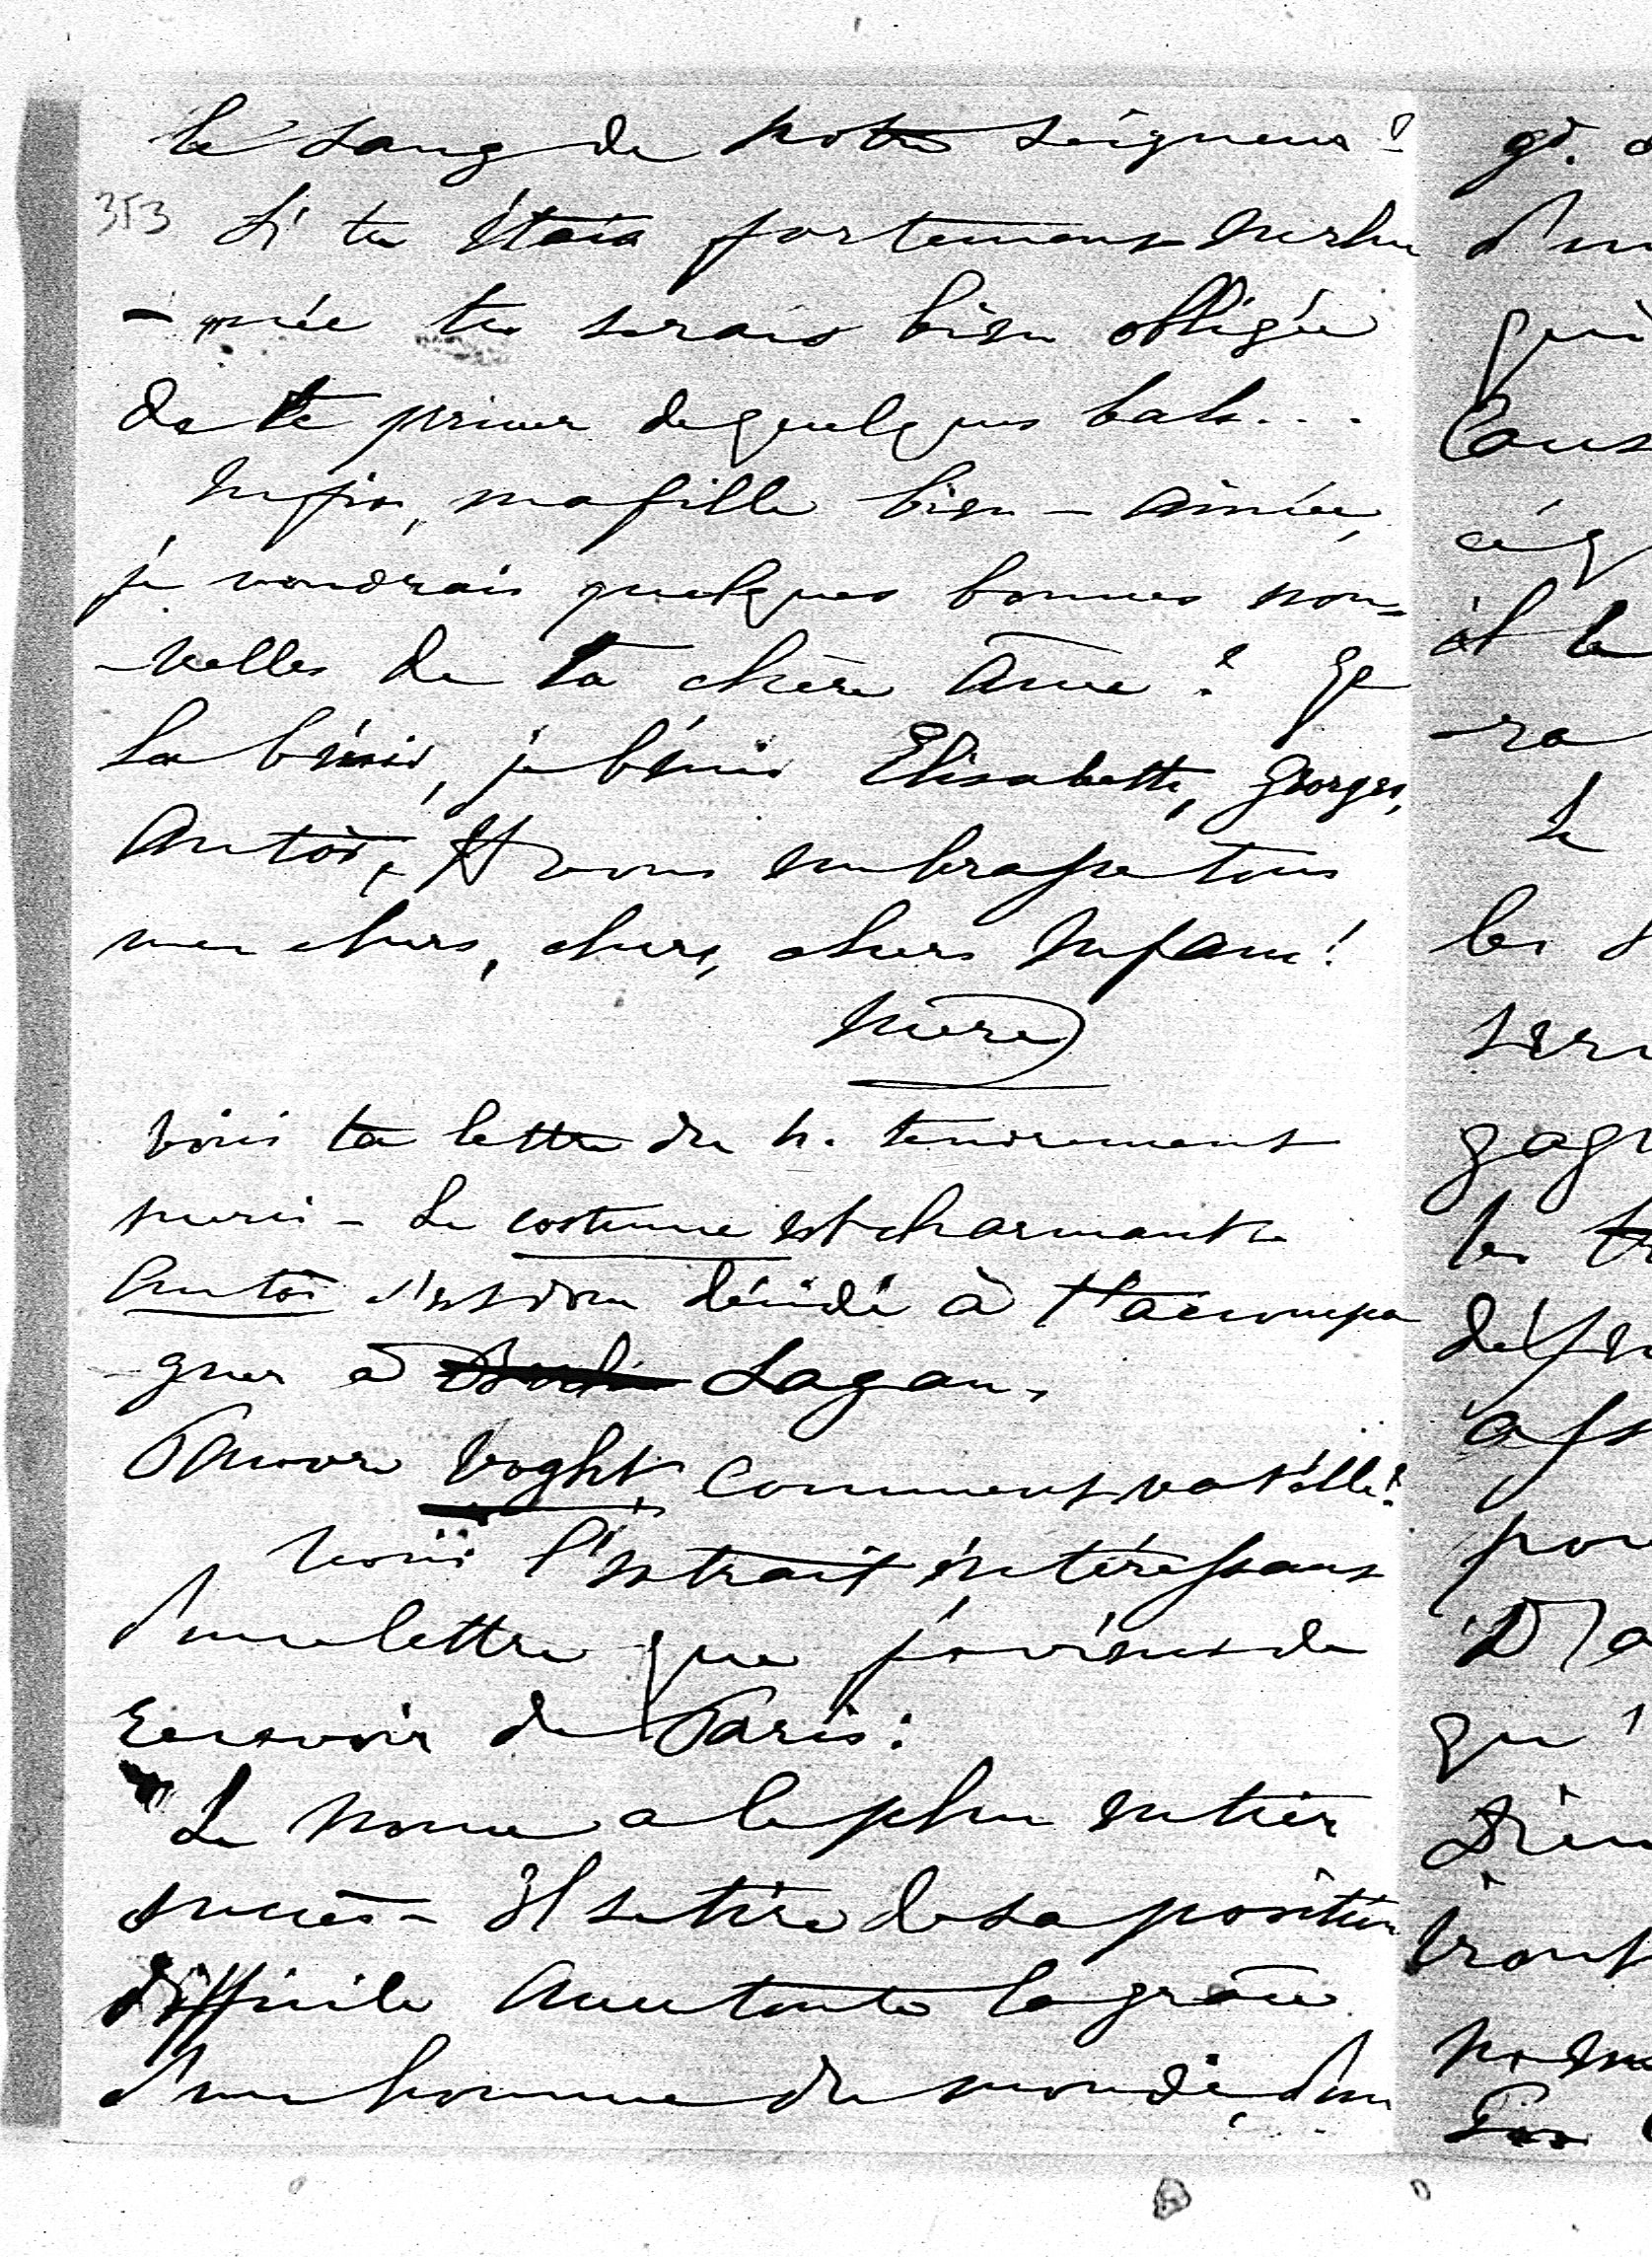 le sang de notre Seigneur?
353 Si tu étais fortement enrhu
-mée tu serais bien obligée
de te priver de quelques bals...
Enfin, ma fille bien-aimée,
je voudrais quelques bonnes nou=
-velles de ta chère âme? Je
la bénis, je bénis Elisabeth, Georges,
Antoi, et vous embrasse tous
mes chers, chers, chers enfans!
Mère
Voici ta lettre du 4. tendrement
merci - Le costume est charmant
Antoi s'est donc décidé à t'accompa
-gner à Sagan.
Pauvre Voght comment va-t-elle?
Voici l'extrait intéressant
d'une lettre que je viens de
recevoir de Paris:
"Le Nonce a le plus entier
succès - Il se tire de sa position
difficile avec toute la grâce
d'un homme du monde, d'un
gd.
d'un
qui
Caus
ce q
et le
-ra
Le
les
ser
gag
les
def
ass
pou
qu'